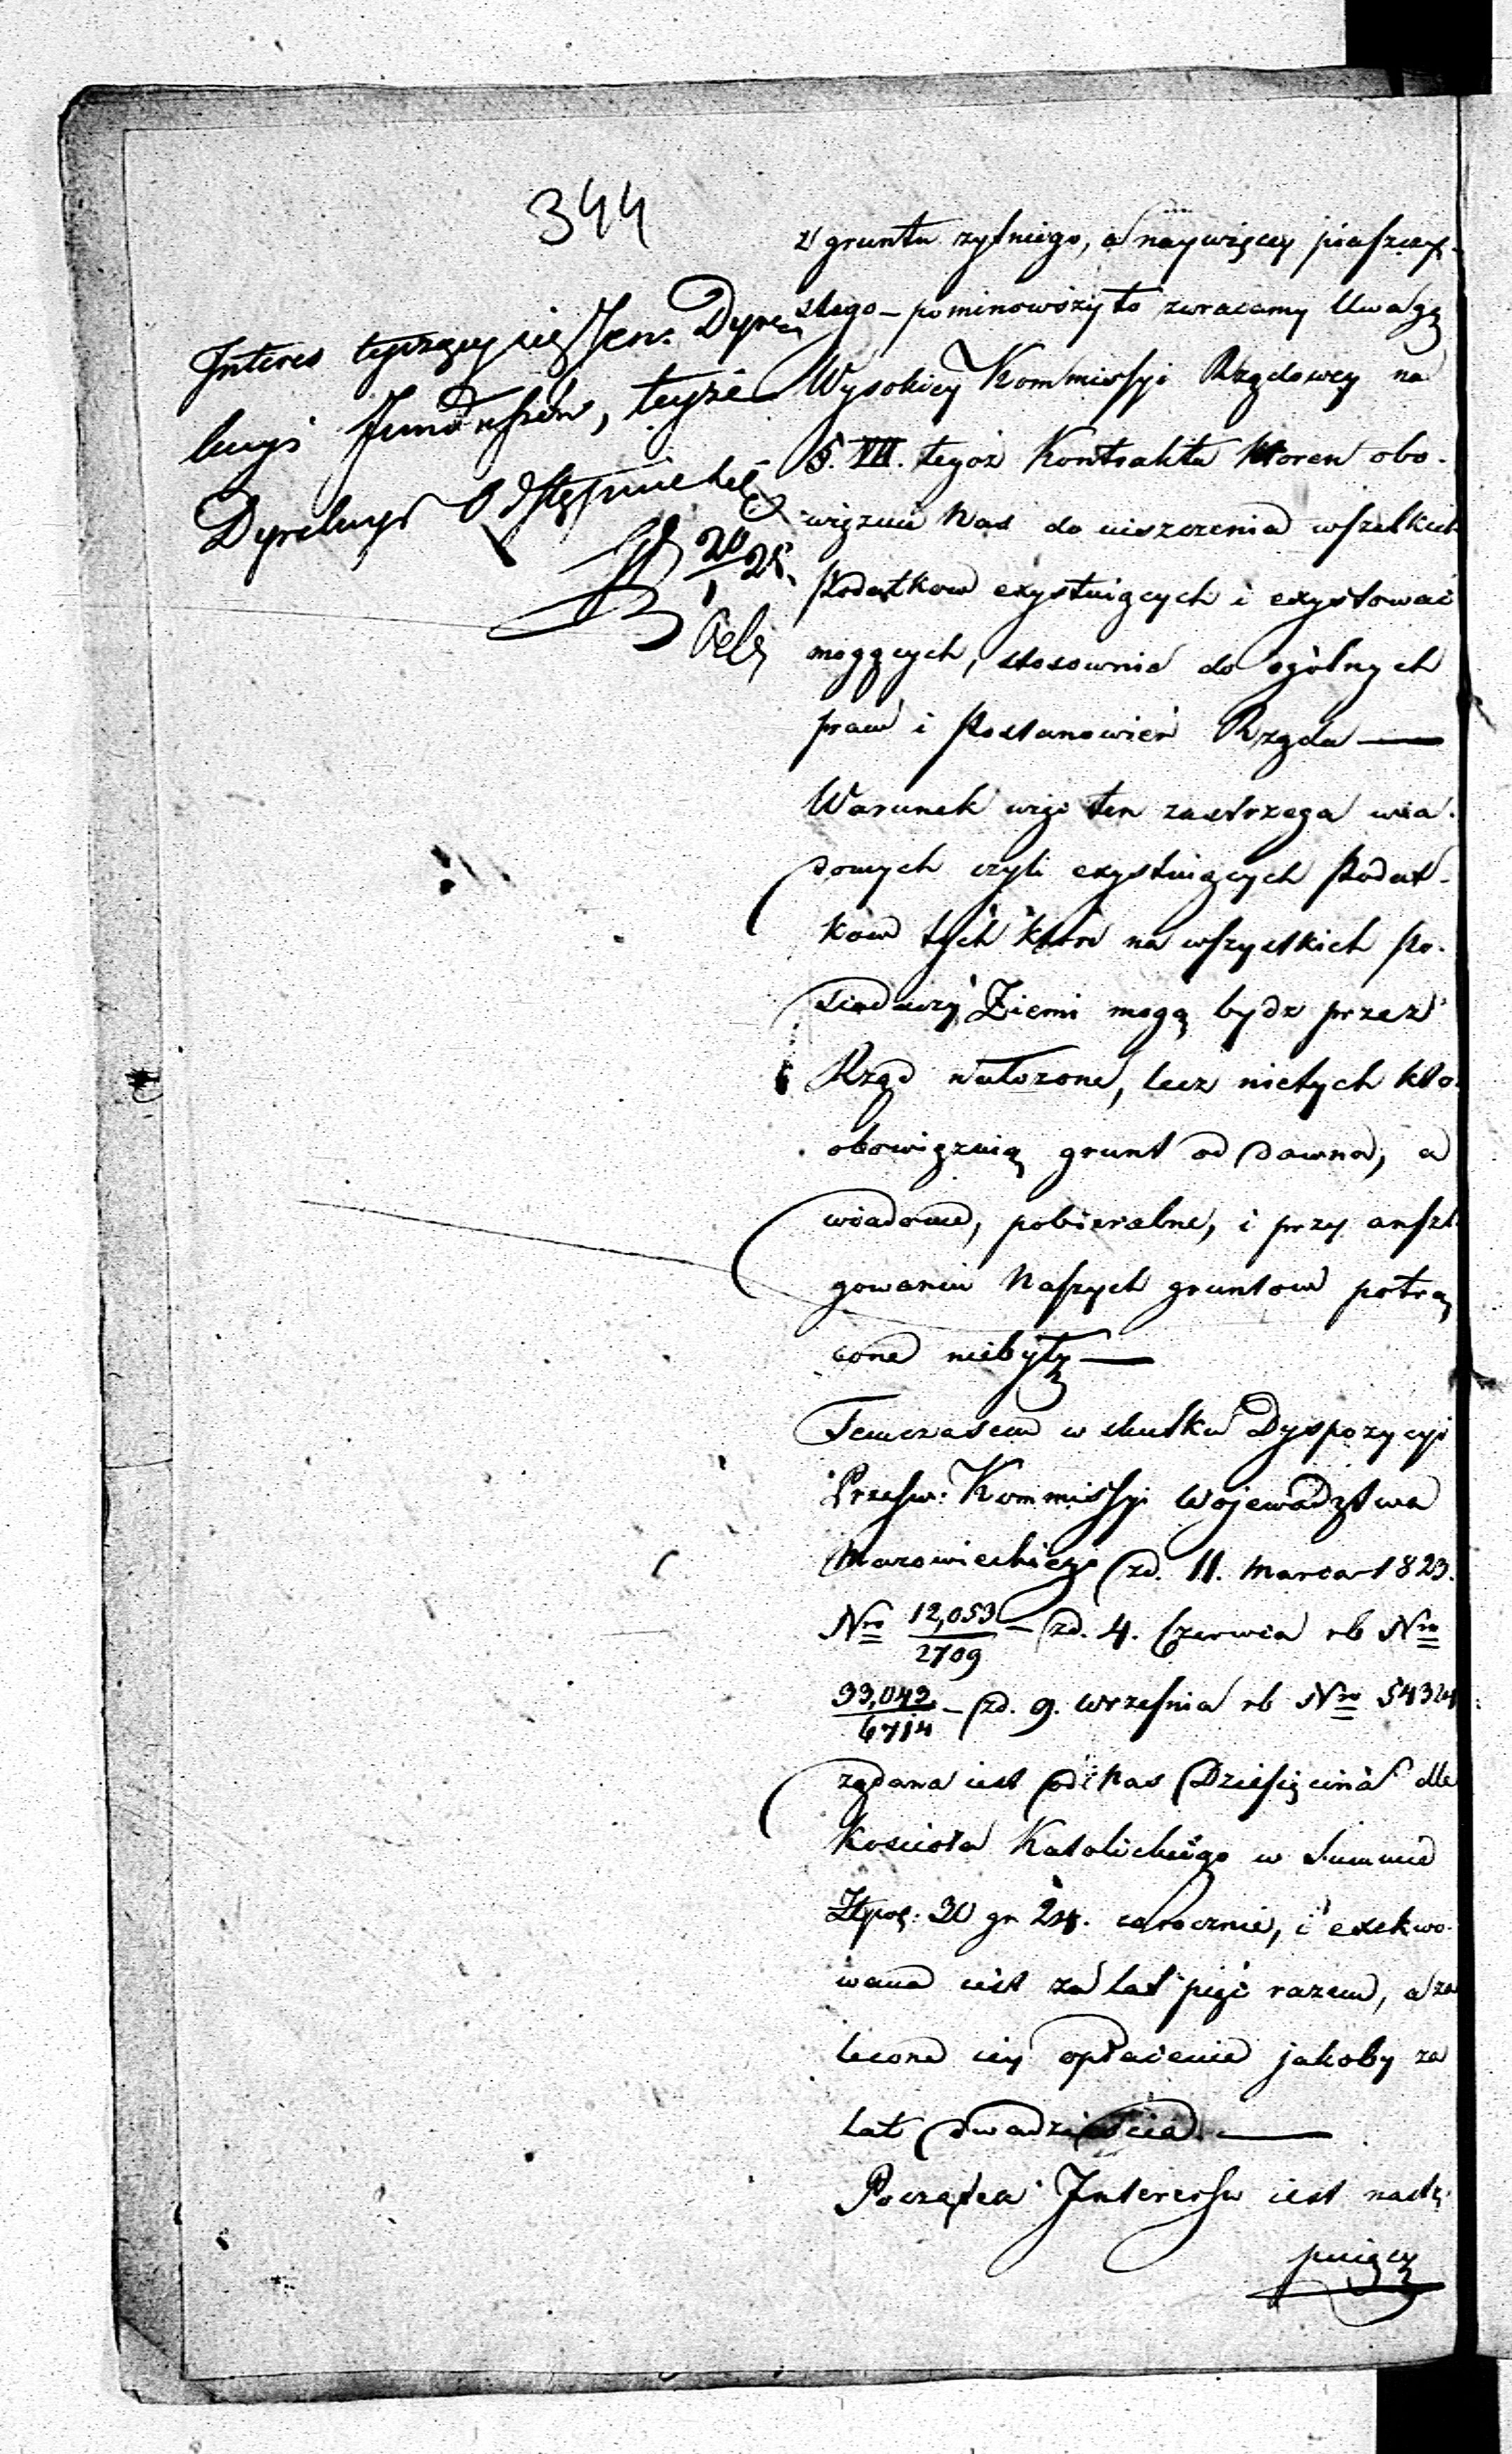 344
Interes tyczący się Jen. Dyre
kcyi Funduszów, teyże
Dyrekcyi Odstępuie
20/1 25.
z gruntu zytniego, a naywięcey piaszczy-
stego — pominowszy to zwracamy Uwagę
Wysokiey Kommissyi Rządowey na
§. VII. tegoż Kontraktu ktoren obo-
więzuie Nas do uiszczenia wszelkich
Podatkow exystuiących i exystować
mogących, stosownie do ogólnych
praw i Postanowień Rządu —
Warunek więc ten zastrzega wia-
domych czyli exystuiących Podat-
ków tych które na wszystkich Po-
siadaczy Ziemi mogą bydz przez
Rząd nałożone, lecz nietych kto.
obowięzuią grunt od dawna, a
wiadome, pobieralne, i przy anszl
gowaniu Naszych gruntow potrą
cone niebyły —
Temczasem w skutku Dyspozycyi
Przesw: Kommissyi Wojewodztwa
Mazowieckiego zd. 11. Marca 1823.
Nro 12,053/2709 — zd. 4. Czerwca rb Nro
33,042/6714 — zd. 9. Września rb Nro 54324
żądana iest od Nas Dziesięcina dla
Kościoła Katolickiego w Summie
Złpol: 30 gr 24. corocznie, i exekwo-
wana iest za lat pięć razem, a za
lecone iey opłacenie jakoby za
lat dwadzieścia —
Początek Interessu iest nastę-
puiący